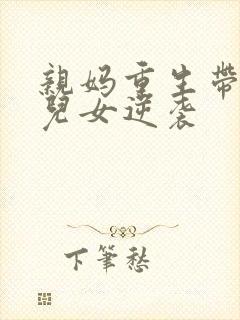 親妈重生帶
兒女逆袭
下筆愁